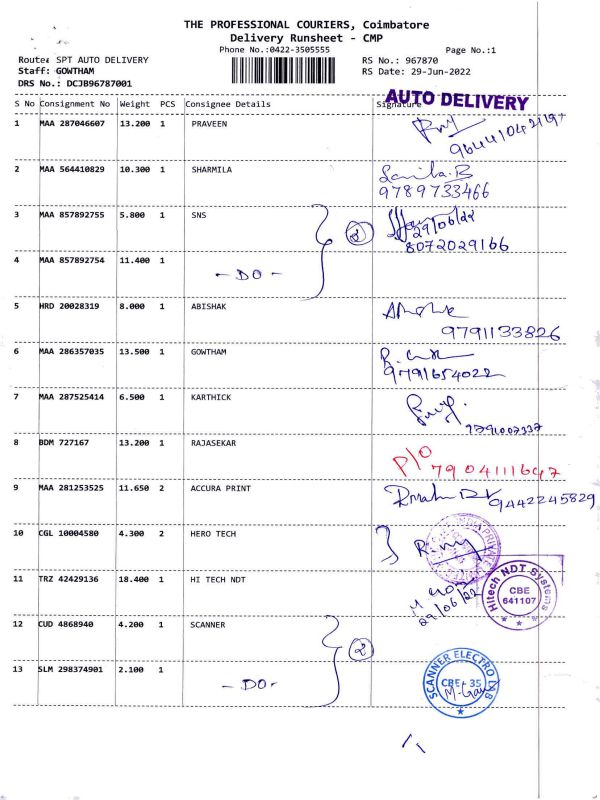 THE PROFESSIONAL COURIERS, Coimbatore
Delivery Runsheet - CMP
Phone No.:0422-3505555 Page No.:1
Route: SPT AUTO DELIVERY RS No.: 967870
Staff: GOWTHAM RS Date: 29-Jun-2022
DRS No.: DCJB96787001
AUTO DELIVERY
S No Consignment No Weight PCS Consignee Details Signature
1 MAA 287046607 13.200 1 PRAVEEN
2 MAA 564410829 10.300 1 SHARMILA
9789733466
3 MAA 857892755 5.800 1 SNS 2
29/06/22
8072029166
4 MAA 857892754 11.400 1
- DO -
5 HRD 20028319 8.000 1 ABISHAK
9791133826
6 MAA 286357035 13.500 1 GOWTHAM
9791654022
7 MAA 287525414 6.500 1 KARTHICK
8 BDM 727167 13.200 1 RAJASEKAR
P/O
7904111647
9 MAA 281253525 11.650 2 ACCURA PRINT
9442245829
10 CGL 10004580 4.300 2 HERO TECH
11 TRZ 42429136 18.400 1 HI TECH NDT
29/06/22
Hitech NDT Systems
CBE
641107
12 CUD 4868940 4.200 1 SCANNER 2
13 SLM 298374901 2.100 1
- DO -
SCANNER ELECTRO LAB
CBE - 35